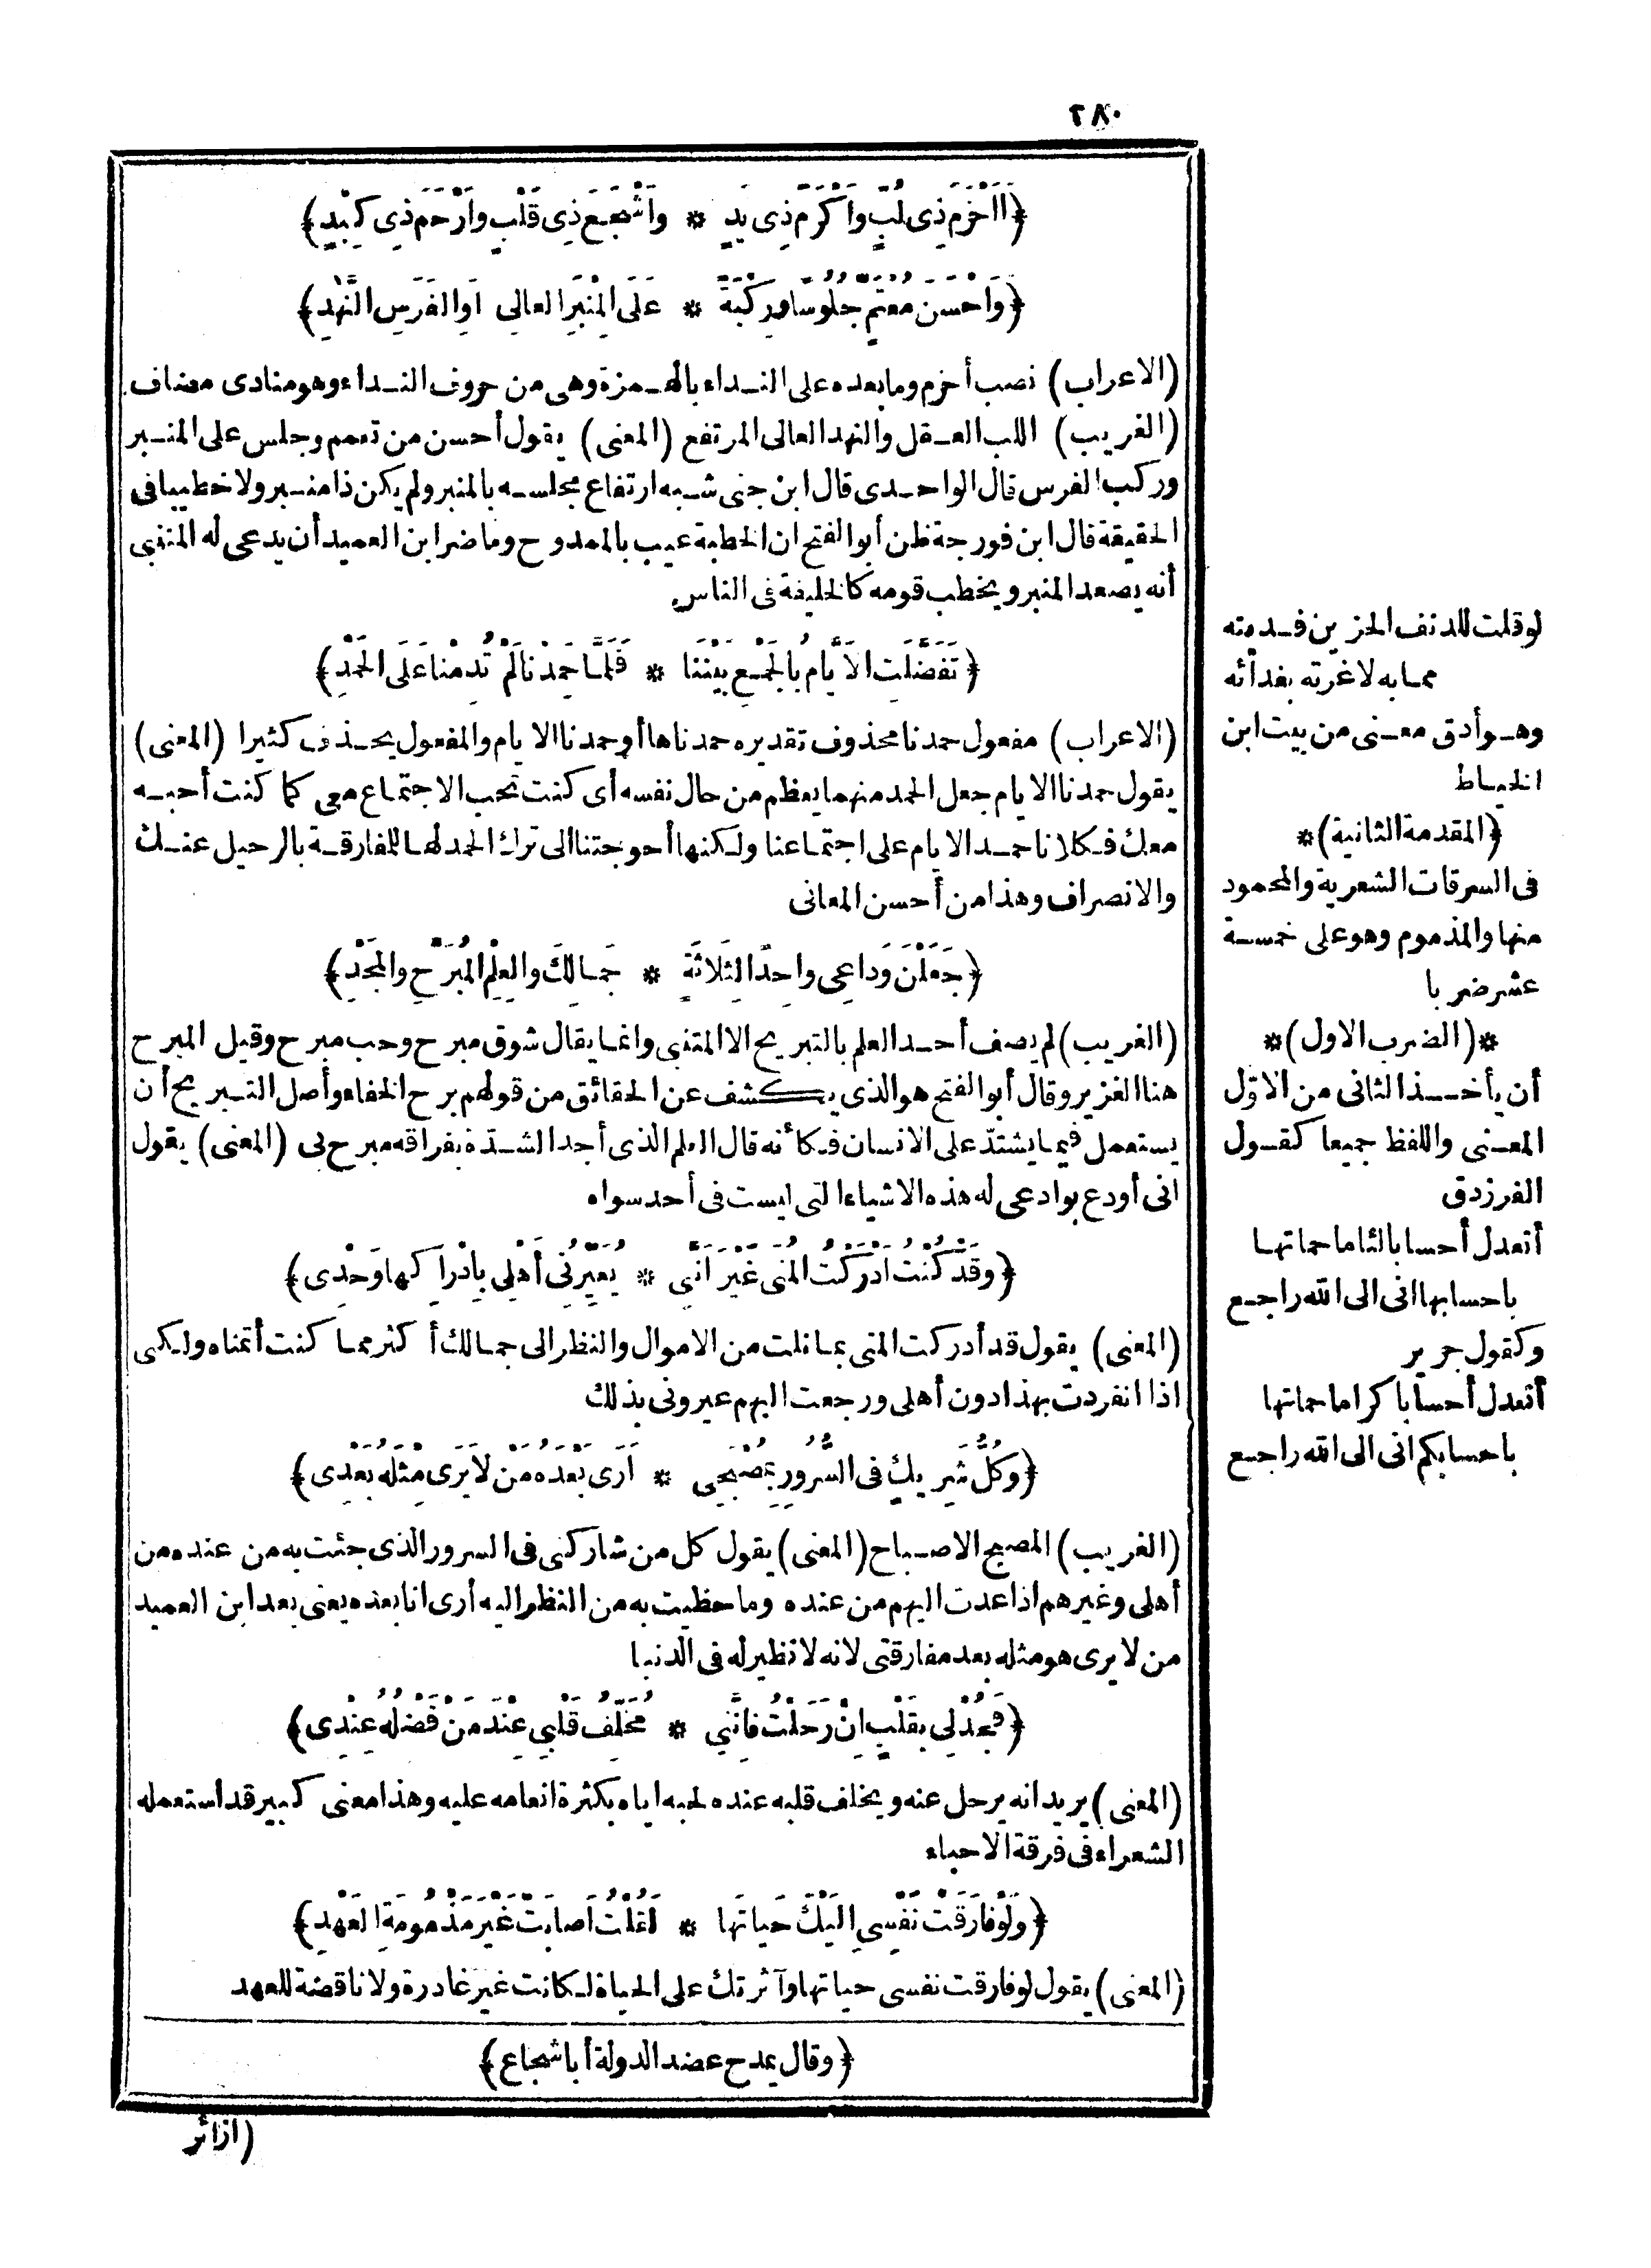 ٢٨٠
﴿أَأَحْزَمَ ذِى لُبٍّ وَأَكْرَمَ ذِى يَدٍ * وَأَشْجَعَ ذِى قَلْبٍ وَأَرْحَمَ ذِى كِبْدِ﴾
﴿وَأَحْسَنَ مُعْتَمٍّ جُلُوسًا وَرِكْبَةً * عَلَى الْمِنْبَرِ العالِى أَوِ الفَرَسِ النَّهْدِ﴾
(الاعراب) نصب أحزم وما بعده على النداء بالهمزة وهى من حروف النداء وهو منادى مضاف
(الغريب) اللب العقل والنهد العالى المرتفع (المعنى) يقول أحسن من تعمم وجلس على المنبر
وركب الفرس قال الواحدى قال ابن جنى شبه ارتفاع مجلسه بالمنبر ولم يكن ذا منبر ولا خطيبا فى
الحقيقة قال ابن فورجة ظن أبو الفتح ان الخطبة عيب بالممدوح وما ضر ابن العميد أن يدعى له المتنبى
أنه يصعد المنبر ويخطب قومه كالخليفة فى الناس
﴿تَفَضَّلَتِ الاَيَّامُ بِالجَمْعِ بَيْنَنا * فَلَمَّا حَمِدْنا لَمْ تُدِمْنا عَلَى الحَمْدِ﴾
(الاعراب) مفعول حمدنا محذوف تقديره حمدناها أو حمدنا الايام والمفعول يحذف كثيرا (المعنى)
يقول حمدنا الايام جعل الحمد منهما يعظم من حال نفسه أى كنت تحب الاجتماع معى كما كنت أحبه
معك فكلانا حمد الايام على اجتماعنا ولكنها أحوجتنا الى ترك الحمد لها للمفارقة بالرحيل عنك
والانصراف وهذا من أحسن المعانى
﴿جَعَلْنَ وَداعِى واحِدًا لِثَلاثَةٍ * جَمالِكَ والعِلْمِ المُبَرِّحِ والمَجْدِ﴾
(الغريب) لم يصف أحد العلم بالتبريح الا المتنبى وانما يقال شوق مبرح وحب مبرح وقيل المبرح
هنا الغزير وقال أبو الفتح هو الذى يكشف عن الحقائق من قولهم برح الخفاء وأصل التبريح أن
يستعمل فيما يشتدّ على الانسان فكأنه قال العلم الذى أجد الشدّة بفراقه مبرح بى (المعنى) يقول
انى أودع بوادعى له هذه الاشياء التى ليست فى أحد سواه
﴿وَقَدْ كُنْتُ أَدْرَكْتُ المُنَى غَيْرَ أَنَّنِى * يُعَيِّرُنِى أَهْلِى بِإِدْراكِها وَحْدِى﴾
(المعنى) يقول قد أدركت المنى بما نلت من الاموال والنظر الى جمالك أكثر مما كنت أتمناه ولكنى
اذا انفردت بهذا دون أهلى ورجعت اليهم عيرونى بذلك
﴿وَكُلُّ شَرِيكٍ فى السُّرُورِ بِمُصْبَحِى * أَرَى بَعْدَهُ مَنْ لاَ يَرَى مِثْلَهُ بَعْدِى﴾
(الغريب) المصبح الاصباح (المعنى) يقول كل من شاركنى فى السرور الذى جئت به من عنده من
أهلى وغيرهم اذا عدت اليهم من عنده وما حظيت به من النظر اليه أرى انا بعده يعنى بعد ابن العميد
من لا يرى هو مثله بعد مفارقتى لانه لا نظير له فى الدنيا
﴿فَجُدْ لِى بِقَلْبٍ إِنْ رَحَلْتُ فَإِنَّنِى * مُخَلِّفُ قَلْبِى عِنْدَ مَنْ فَضْلُهُ عِنْدِى﴾
(المعنى) يريد انه يرحل عنه ويخلف قلبه عنده لحبه اياه بكثرة انعامه عليه وهذا معنى كبير قد استعمله
الشعراء فى فرقة الاحباء
﴿وَلَوْ فارَقَتْ نَفْسِى إِلَيْكَ حَياتَها * لَقُلْتُ أَصابَتْ غَيْرَ مَذْمُومَةِ العَهْدِ﴾
(المعنى) يقول لو فارقت نفسى حياتها وآثرتك على الحياة لكانت غير غادرة ولا ناقضة للعهد
﴿وقال يمدح عضد الدولة أبا شجاع﴾
(ازائر
لو قلت للدنف الحزين فديته
مما به لاغرته بفدائه
وهو أدق معنى من بيت ابن
الخياط
﴿المقدمة الثانية)*
فى السرقات الشعرية والمحمود
منها والمذموم وهو على خمسة
عشر ضربا
*(الضرب الاول)*
أن يأخذ الثانى من الاوّل
المعنى واللفظ جميعا كقول
الفرزدق
أتعدل أحسابا لئاما حماتها
باحسابها انى الى الله راجع
وكقول جرير
أتعدل أحسابا كراما حماتها
باحسابكم انى الى الله راجع